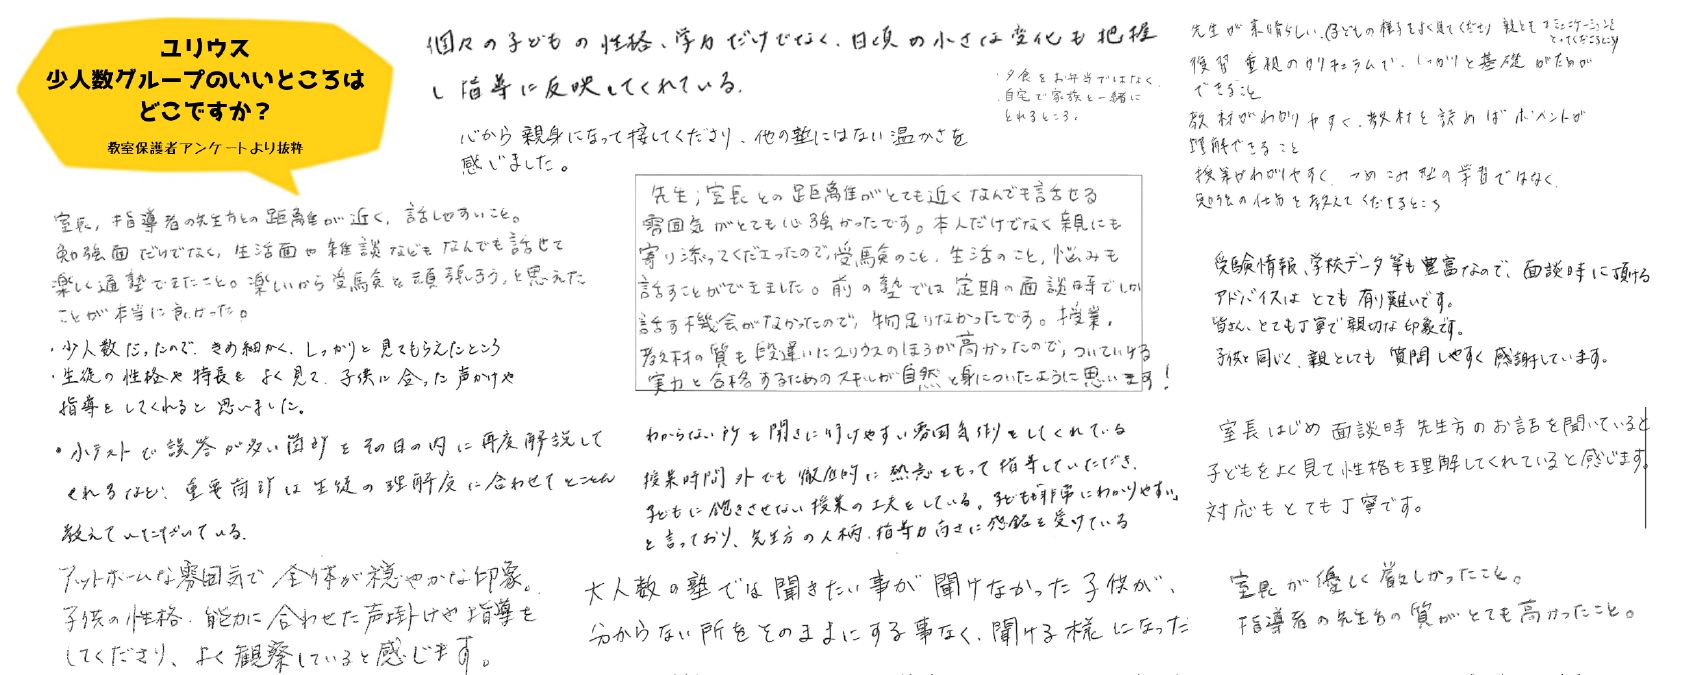 ユリウス
少人数グループのいいところは
どこですか？
教室保護者アンケートより抜粋
個々の子どもの性格、学力だけでなく、日頃の小さな変化も把握
し指導に反映してくれている。
・夕食をお弁当ではなく、
自宅で家族と一緒に
とれるところ。
心から親身になって接してくださり、他の塾にはない温かさを
感じました。
室長、指導者の先生方との距離が近く、話しやすいこと。
勉強面だけでなく、生活面や雑談などもなんでも話せて
楽しく通塾できたこと。楽しいから受験を頑張ろう、と思えた
ことが本当に良かった。
・少人数だったので、きめ細かく、しっかりと見てもらえたところ
・生徒の性格や特長をよく見て、子供に合った声かけや
指導をしてくれると思いました。
・小テストで誤答が多い箇所をその日の内に再度解説して
くれるなど、重要箇所は生徒の理解度に合わせてとことん
教えていただいている。
アットホームな雰囲気で全体が穏やかな印象。
子供の性格、能力に合わせた声掛けや指導を
してくださり、よく観察していると感じます。
先生；室長との距離がとても近くなんでも話せる
雰囲気がとても心強かったです。本人だけでなく親にも
寄り添ってくださったので、受験のこと、生活のこと、悩みも
話すことができました。前の塾では定期の面談時でしか
話す機会がなかったので、物足りなかったです。授業、
教材の質も段違いにユリウスのほうが高かったので、ついていける
実力と合格するためのスキルが自然と身についたように思います！
わからない所を聞きに行けやすい雰囲気作りをしてくれている
授業時間外でも徹底的に熱意をもって指導していただき、
子どもに飽きさせない授業の工夫をしている。子どもも「非常にわかりやすい」
と言っており、先生方の人柄、指導力高さに感銘を受けている
大人数の塾では聞きたい事が聞けなかった子供が、
分からない所をそのままにする事なく、聞ける様になった
先生が素晴らしい（子どもの様子をよく見てくださり 親ともコミュニケーションを
とってくださる
復習重視のカリキュラムで、しっかりと基礎がためが
できること
教材がわかりやすく、教材を読めばポイントが
理解できること
授業がわかりやすく、つめこみ型の学習ではなく、
勉強の仕方を教えてくださるところ
受験情報、学校データ等も豊富なので、面談時に頂ける
アドバイスはとても有り難いです。
皆さん、とても丁寧で親切な印象です。
子供と同じく、親としても質問しやすく感謝しています。
室長はじめ面談時先生方のお話を聞いていると
子どもをよく見て性格も理解してくれていると感じます。
対応もとても丁寧です。
室長が優しく厳しかったこと。
指導者の先生方の質がとても高かったこと。